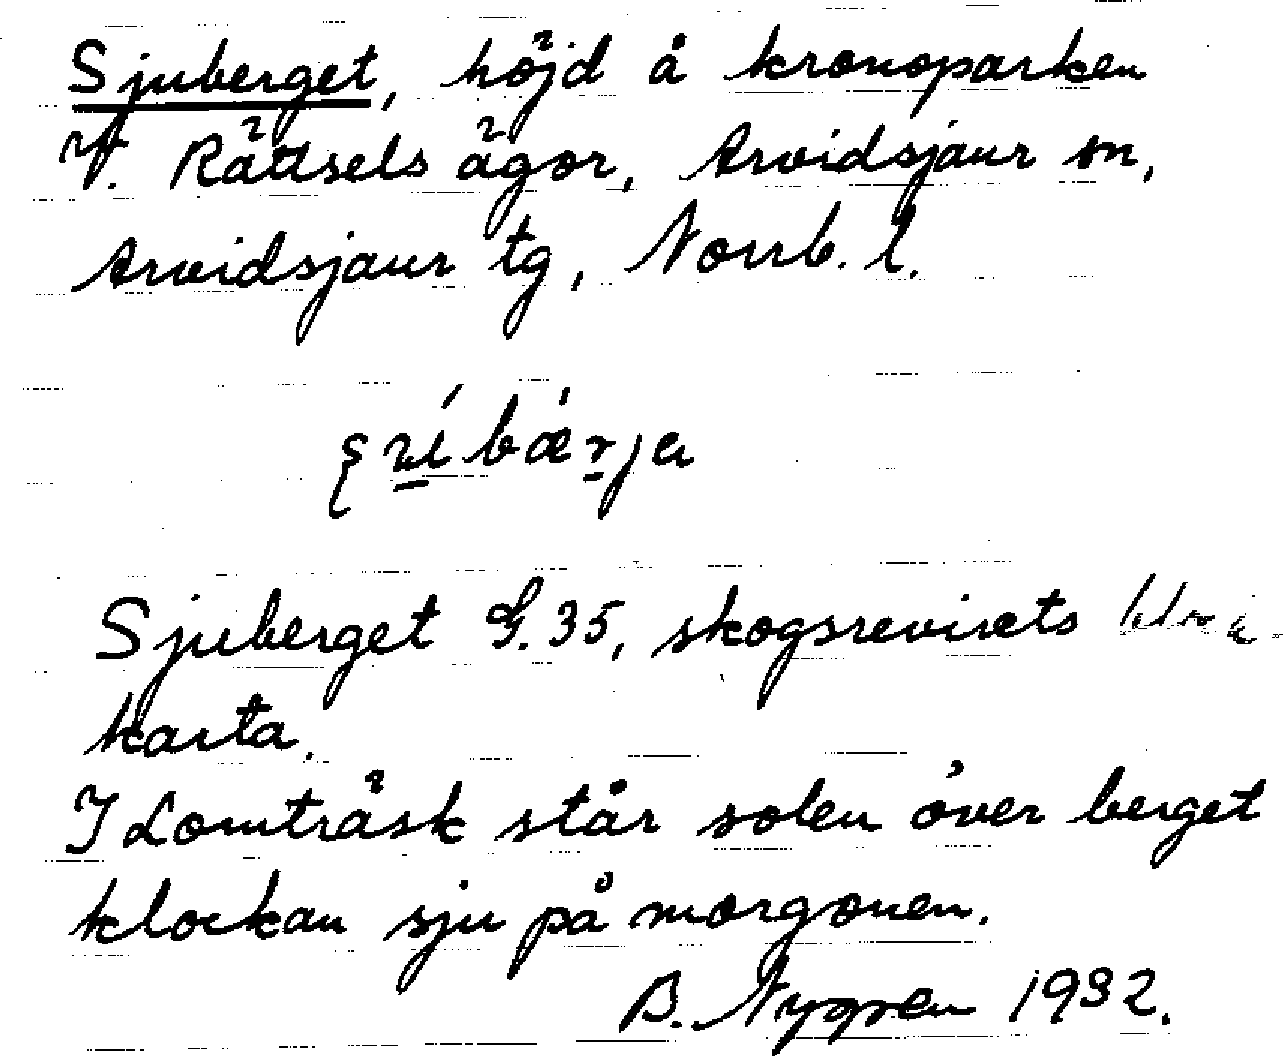 Sjuberget, höjd å kronoparken
V. Rättsels ägor, Arvidsjaur sn,
Arvidsjaur tg, Norrb. l.
Sjuberget G.35, skogsrevirets
karta.
I Lomträsk står solen över berget
klockan sju på morgonen.
B. Nygren 1932.